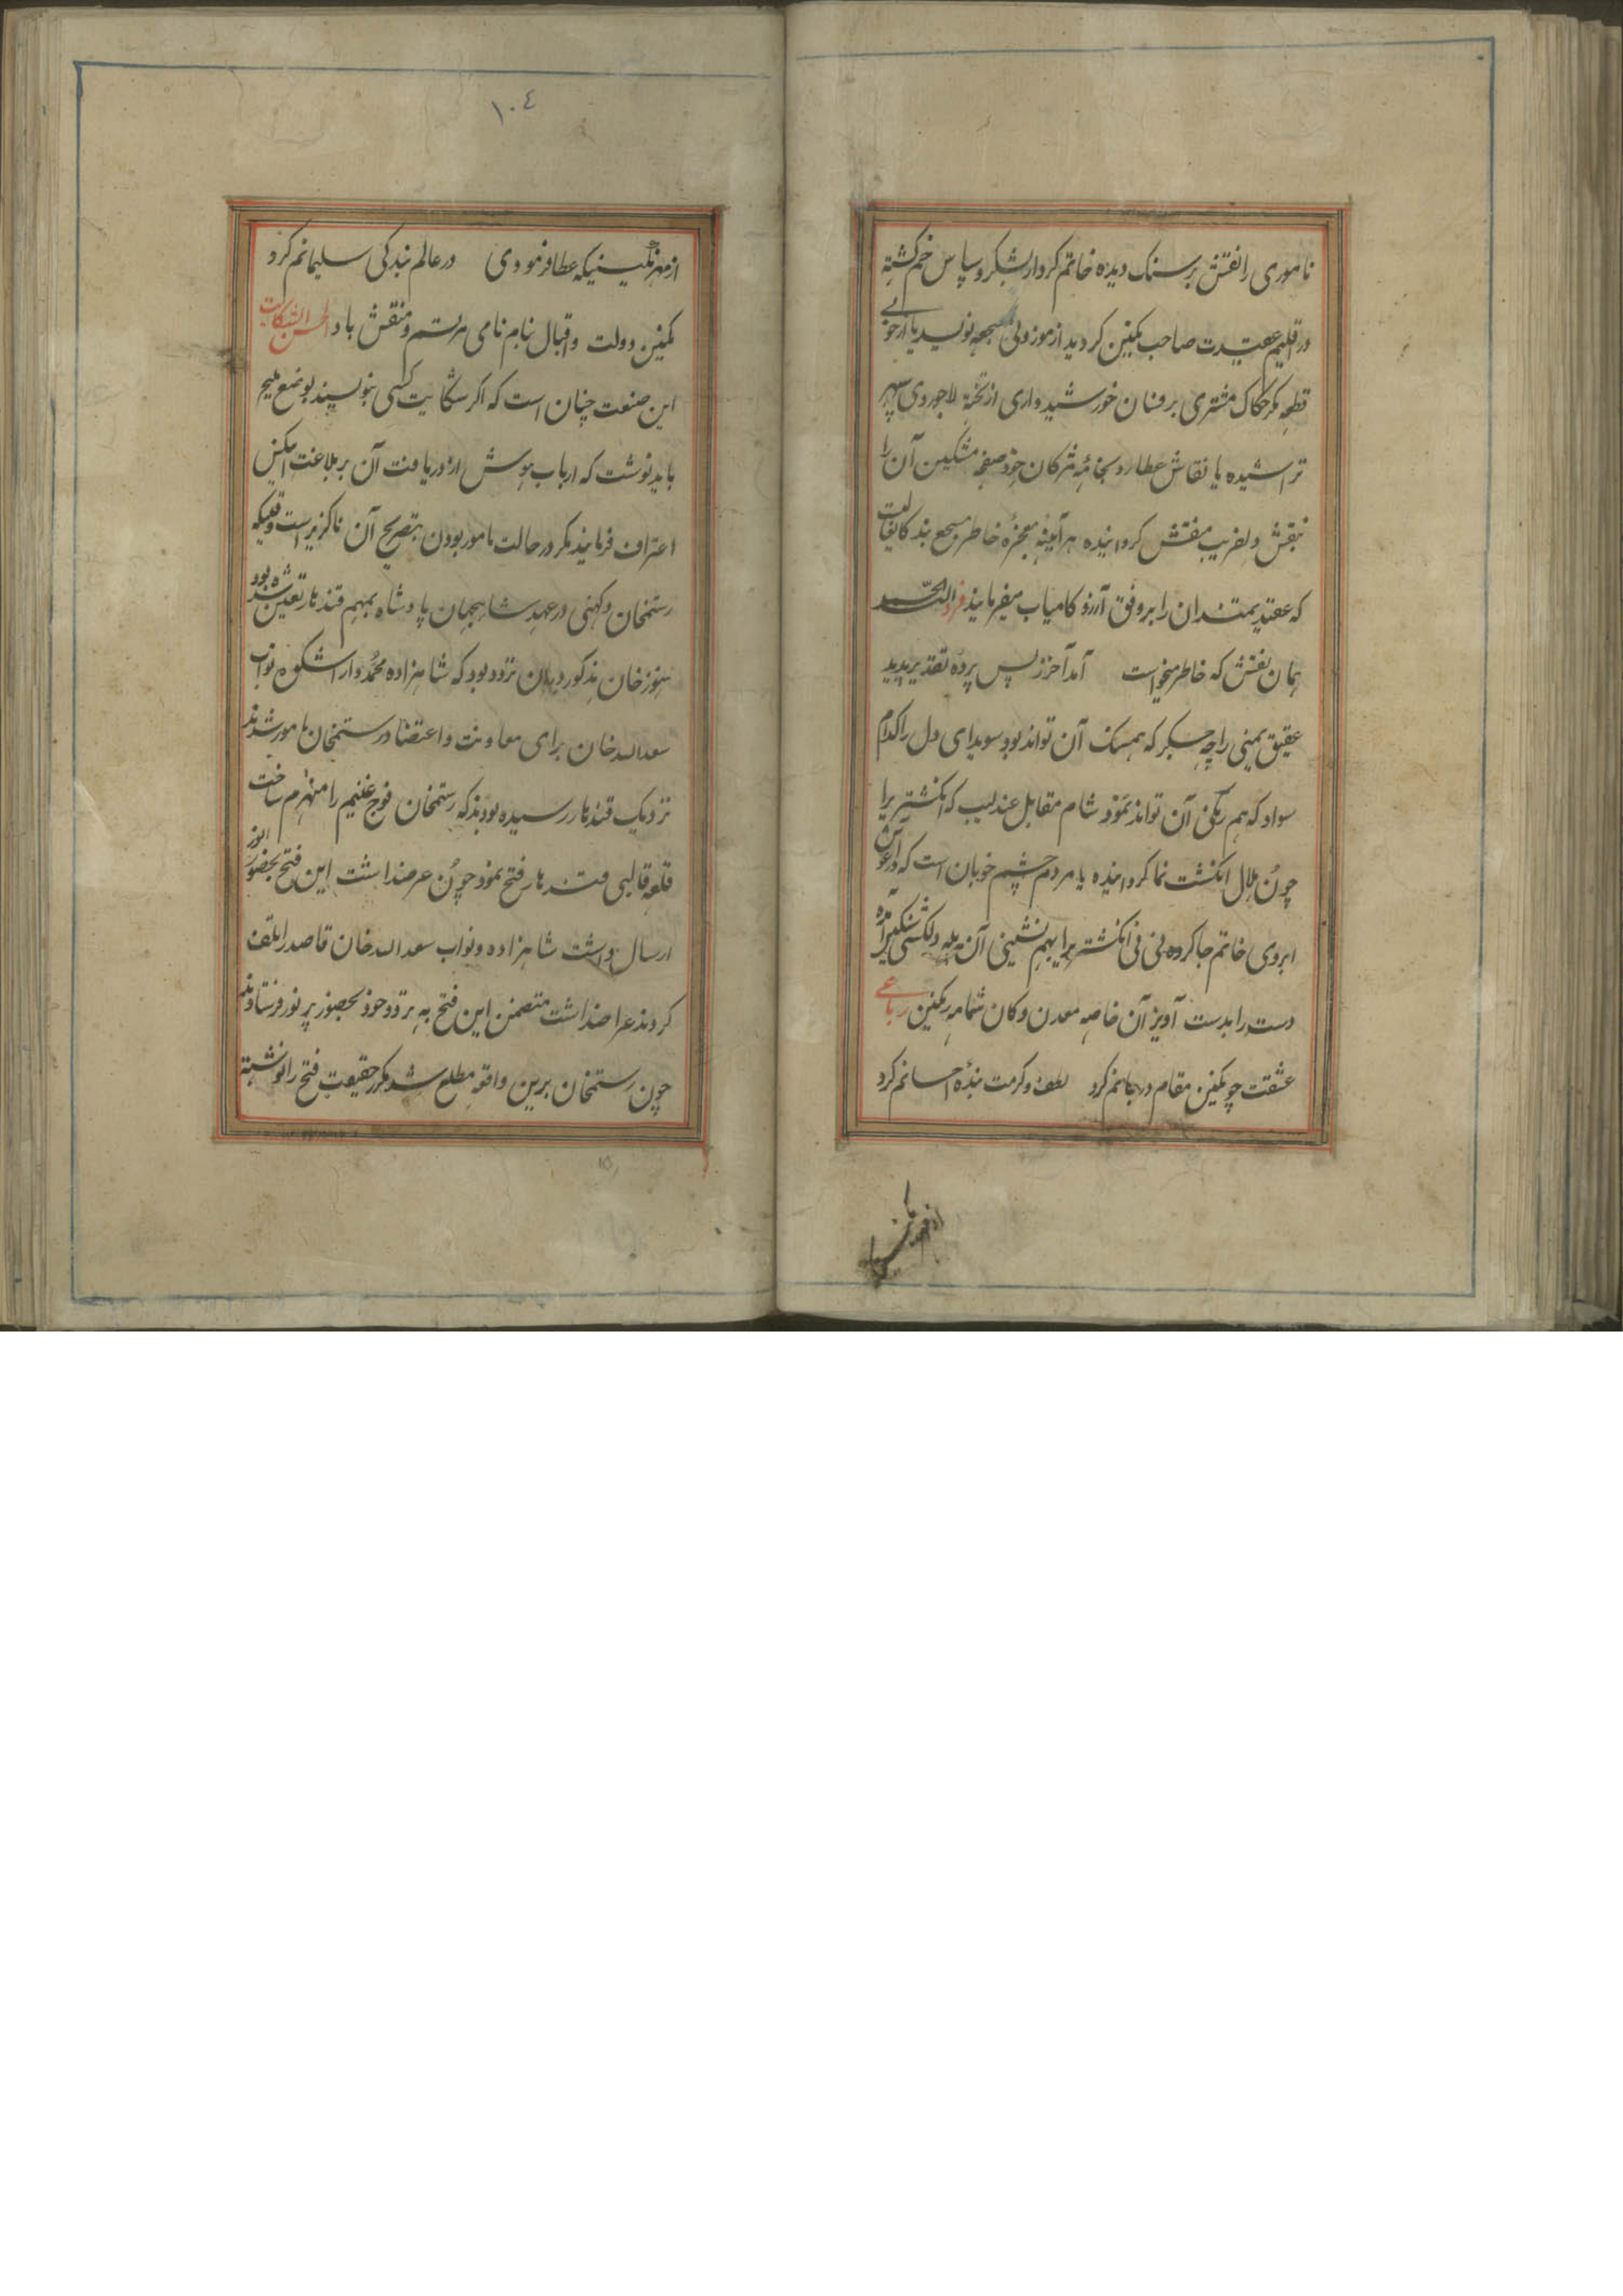 ناموری را نقش بر سنک دیده خاتم کردار بشکر و سپاس خم کشته
در اقلیم عقیدت صاحب نکین کردید از موزونی
قطعه مکر حکاک مشتری بر فسان خورشید واری از تختهٔ لاجوردی سپهر
تراشیده یا نقاش عطارد بخامهٔ مژکان خود صفحه مشکین آن را
بنقش دلفریب منقش کردانیده هر آینه معجزهٔ خاطر
که عقیدتمندان را بر وفق آرزو کامیاب میفرمایند فرد الحمد
همان نقش که خاطر میخواست آمد آخر ز پس پرده تقدیر پدید
عقیق یمنی را چه جگر که همسنک آن تواند بود سویدای دل را کدام
سواد که هم رنکی آن تواند نمود شام مقابل عندلیب که انکشتریرا
چون هلال انکشت نما کردانیده یا مردم چشم خوبان است که در آغوش
ابروی خاتم جا کرده نی نی انکشتریرا بهم نشینی آن
دست را بدست آویز آن خاصه معدن و کان شمامه رنکین رباعی
عشقت چو نکین مقام در جانم کرد لطف و کرمت بندهٔ احسانم کرد
از مهر نکین
۱۰۴
از مهر نکینیکه عطا فرمودی در عالم بندکی سلیمانم کرد
نکین دولت و اقبال بنام نامی مرتسم و منقش باد حسن الشکایت
این صنعت چنان است که اکر شکایت کسی بنویسند بوضع ملیح
باید نوشت که ارباب هوش از دریافت آن بر بلاغت
اعتراف فرمایند مکر در حالت مامور بودن بتصریح آن ناکزیر است وقتیکه
رستمخان دکهنی در عهد شاهجهان پادشاه بمهم قندهار تعین شده بود
هنوز خان مذکور در میان تردد بود که شاهزاده محمد دارا شکوه و نواب
سعدالله خان برای معاونت و اعتضاد رستمخان مامور شدند
نزدیک قندهار رسیده بودند که رستمخان فوج غنیم را منهزم ساخت
قلعه قندهار فتح نمود چون عرضداشت این فتح بحضور انور
ارسال داشت شاهزاده و نواب سعدالله خان قاصد را تلف
کردند عراضداشت متضمن این فتح به تردد خود بحضور پر نور فرستادند
چون رستمخان برین واقعه مطلع شد مکرر حقیقت فتح را نوشته